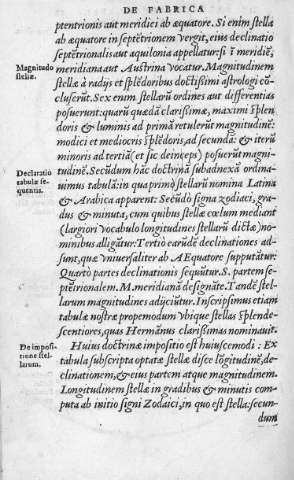 DE FABRICA
ptentrionis aut meridiei ab æquatore. Si enim stella
ab æquatore in septētrionem vergit, eius declinatio
septētrionalis aut aquilonia appellatur: si ī meridiē,
Magnitudo
stellæ.
meridiana aut Austrina vocatur. Magnitudinem
stellæ à radijs et splēdoribus doctissimi astrologi cō-
cluserūt. Sex enim stellarū ordines aut differentias
posuerunt: quarū quædā clarissimæ, maximi splen
doris & luminis ad primā retulerūt magnitudinē:
modici et mediocris splēdoris, ad secundā: & iterū
minoris ad tertiā (et sic deinceps) posuerūt magni-
Declaratio
tabulæ se-
quentis.
tudinē. Secūdum hāc doctrinā subadnexā ordina-
uimus tabulā: in qua primò stellarū nomina Latina
& Arabica apparent: Secūdò signa zodiaci, gra-
dus & minuta, cum quibus stellæ cœlum mediant
(largiori vocabulo longitudines stellarū dictæ) no-
minibus alligātur: Tertiò earūdē declinationes ad-
sunt, quæ vniuersaliter ab AEquatore supputātur:
Quartò partes declinationis sequūtur. S. partem se-
ptētrionalem. M. meridianā designāte. Tandē stel-
larum magnitudines adijciūtur. Inscripsimus etiam
tabulæ nostræ propemodum vbique stellas splende-
scentiores, quas Hermānus clarissimas nominauit.
De imposi-
tione stel-
larum.
Huius doctrinæ impositio est huiuscemodi: Ex
tabula subscripta optatæ stellæ disce lōgitudinē, de-
clinationem, & eius partem atque magnitudinem.
Longitudinem stellæ in gradibus & minutis com-
puta ab initio signi Zodiaci, in quo est stella: secun-
dum